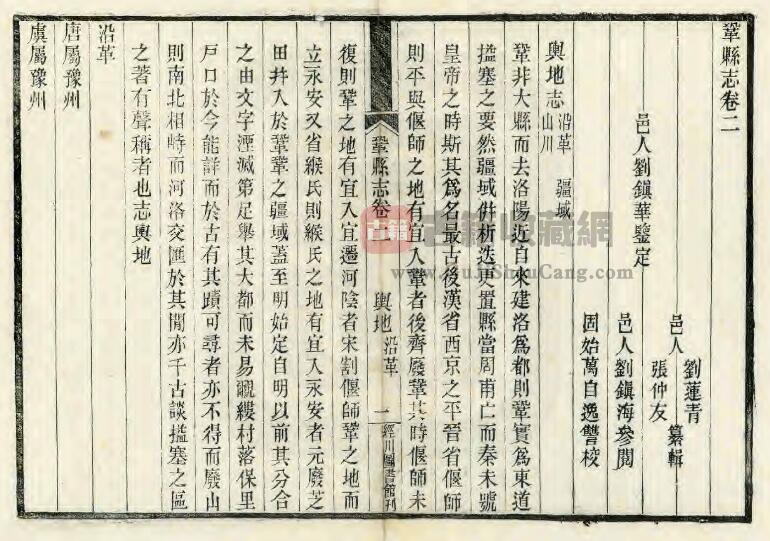 鞏縣志卷二
邑人劉鎮華鑒定
邑人劉蓮青張仲友纂輯
邑人劉鎮海參閱
固始萬自逸讐校
輿地志 沿革 疆域 山川
鞏非大縣而去洛陽近自來建洛爲都則鞏實爲東道
搤塞之要然疆域併析迭更置縣當周甫亡而秦未號
皇帝之時斯其爲名最古後漢省西京之平晉省偃師
則平與偃師之地有宜入鞏者後齊廢鞏其時偃師未
鞏縣志卷二 輿地 沿革 一 經川圖書館刊
復則鞏之地有宜入宜遷河陰者宋割偃師鞏之地而
立永安又省緱氏則緱氏之地有宜入永安者元廢芝
田幷入於鞏鞏之疆域蓋至明始定自明以前其分合
之由文字湮滅第足舉其大都而未易覼縷村落保里
戸口於今能詳而於古有其蹟可尋者亦不得而廢山
則南北相峙而河洛交匯於其閒亦千古談搤塞之區
之著有聲稱者也志輿地
沿革
唐屬豫州
虞屬豫州
古籍收藏網
www.GuJiShouCang.com